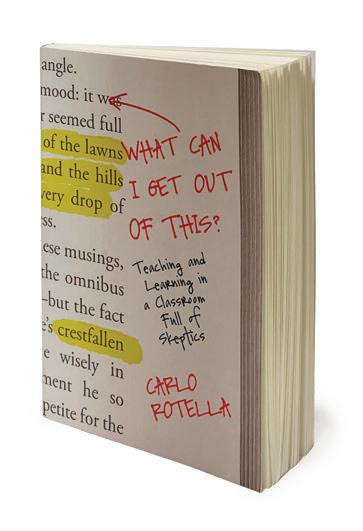 angle.
mood: it was
r seemed full
of the lawns
and the hills
very drop of
ss.
ese musings,
the omnibus
–but the fact
e's crestfallen
e wisely in
ment he so
petite for the
WHAT CAN
I GET OUT
OF THIS?
Teaching and
Learning in
a Classroom
Full of
Skeptics
CARLO
ROTELLA